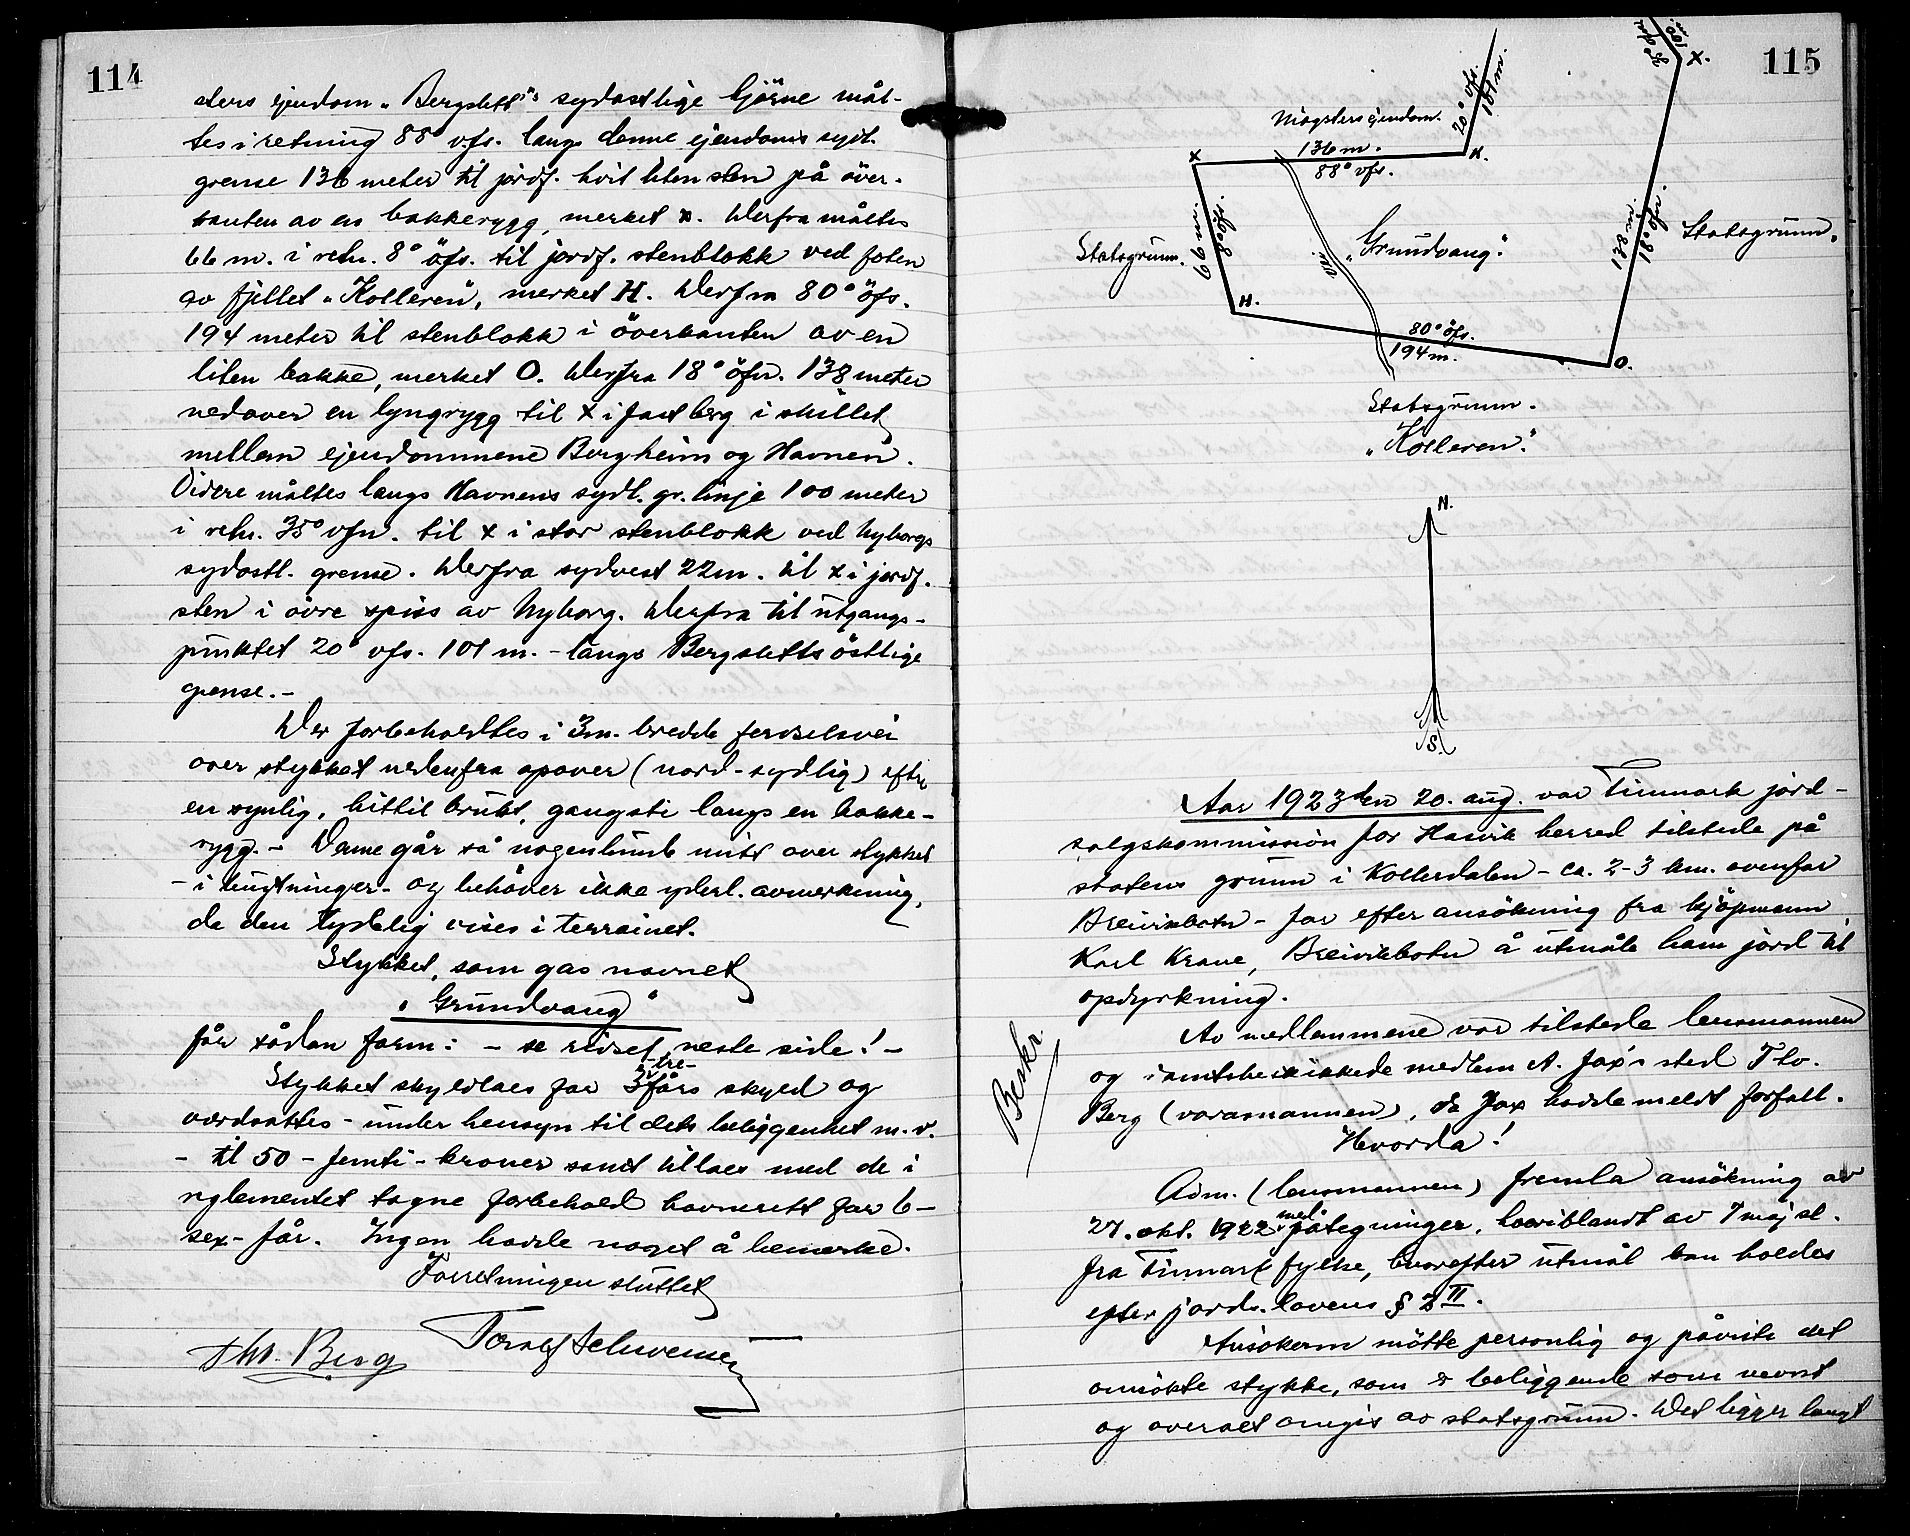 114
sters ejendom "Bergslett"s sydostlige hjörne mål-
tes i retning 88° v.f.s. langs denne ejendoms sydl.
grense 136 meter til jordf. hvit liten sten på över-
kanten av en bakkerygg, merket x. Derfra måltes
66 m. i retn. 8° öfs. til jordf. stenblokk ved foten
av fjellet "Kolleren", merket H. Derfra 80° öfs.
194 meter til stenblokk i överkanten av en
liten bakke, merket O. Derfra 18° öfn. 138 meter
nedover en lyngrygg til x i fast berg i skillet
mellem ejendommene Bergheim og Havnen.
Videre måltes langs Havnens sydl. gr. linje 100 meter
i retn. 35° vfn. til x i stor stenblokk ved Nyborgs
sydostl. grense. Derfra sydvest 22 m. til x i jordf.
sten i övre spiss av Nyborg. Derfra til utgangs-
punktet 20° vfs. 101 m. - langs Bergsletts östlige
grense. -
Der forbeholdtes i 3 m. bredde ferdselsvei
over stykket nedenfra opover (nord-sydlig) efter
en synlig, hittil brukt, gangsti langs en bakke-
rygg. - Denne går så nogenlunde midt over stykket
- i bugtninger - og behöver ikke yderl. avmerkning,
da den tydelig vises i terrainet.
Stykket, som gas navnet
"Grundvang"
får sådan form: - se risset, neste side! -
Stykket skyldlaes for 3 -tre- førs skyld og
værdsattes - under hensyn til dets beliggenhet m.v.
- til 50 - femti - kroner samt tillaes med de i
reglementet tagne forbehold havnerett for 6 -
sex - får. Ingen hadde noget å bemerke.
Forretningen sluttet
Tho. Berg
115
x.
100 m.
20° vfs.
101 m.
Mögsters ejendom.
136 m.
88° vfs.
x
K.
66 m.
8° öfs.
Statsgrunn.
vei
"Grundvang".
138 m.
18° öfn.
Statsgrunn.
H.
80° öfs.
194 m.
O.
Statsgrunn.
"Kolleren".
N.
S.
Aar 1923 den 20. aug. var Finmark jord-
salgskommission for Hasvik herred tilstede på
statens grunn i Kollerdalen - ca. 2-3 km. ovenfor
Breivikbotn - for efter ansökning fra kjöpmann
Karl Krane, Breivikbotn å utmåle ham jord til
opdyrkning.
Av medlemmene var tilstede lensmannen
og i amtsbeskikkede medlem A. Jax's sted Tho.
Berg (varamannen), da Jax hadde meldt forfall.
Hvorda!
Beskr.
Adm. (lensmannen) fremla ansökning av
27. okt. 1922 med påtegninger, hvoriblandt av 7 maj sl.
fra Finmark fylke, hvorefter utmål kan holdes
efter jords. lovens § 2 II.
Ansökeren mötte personlig og påviste det
omsökte stykke, som er beliggende som nevnt
og overalt omgis av statsgrunn. Det ligger langt